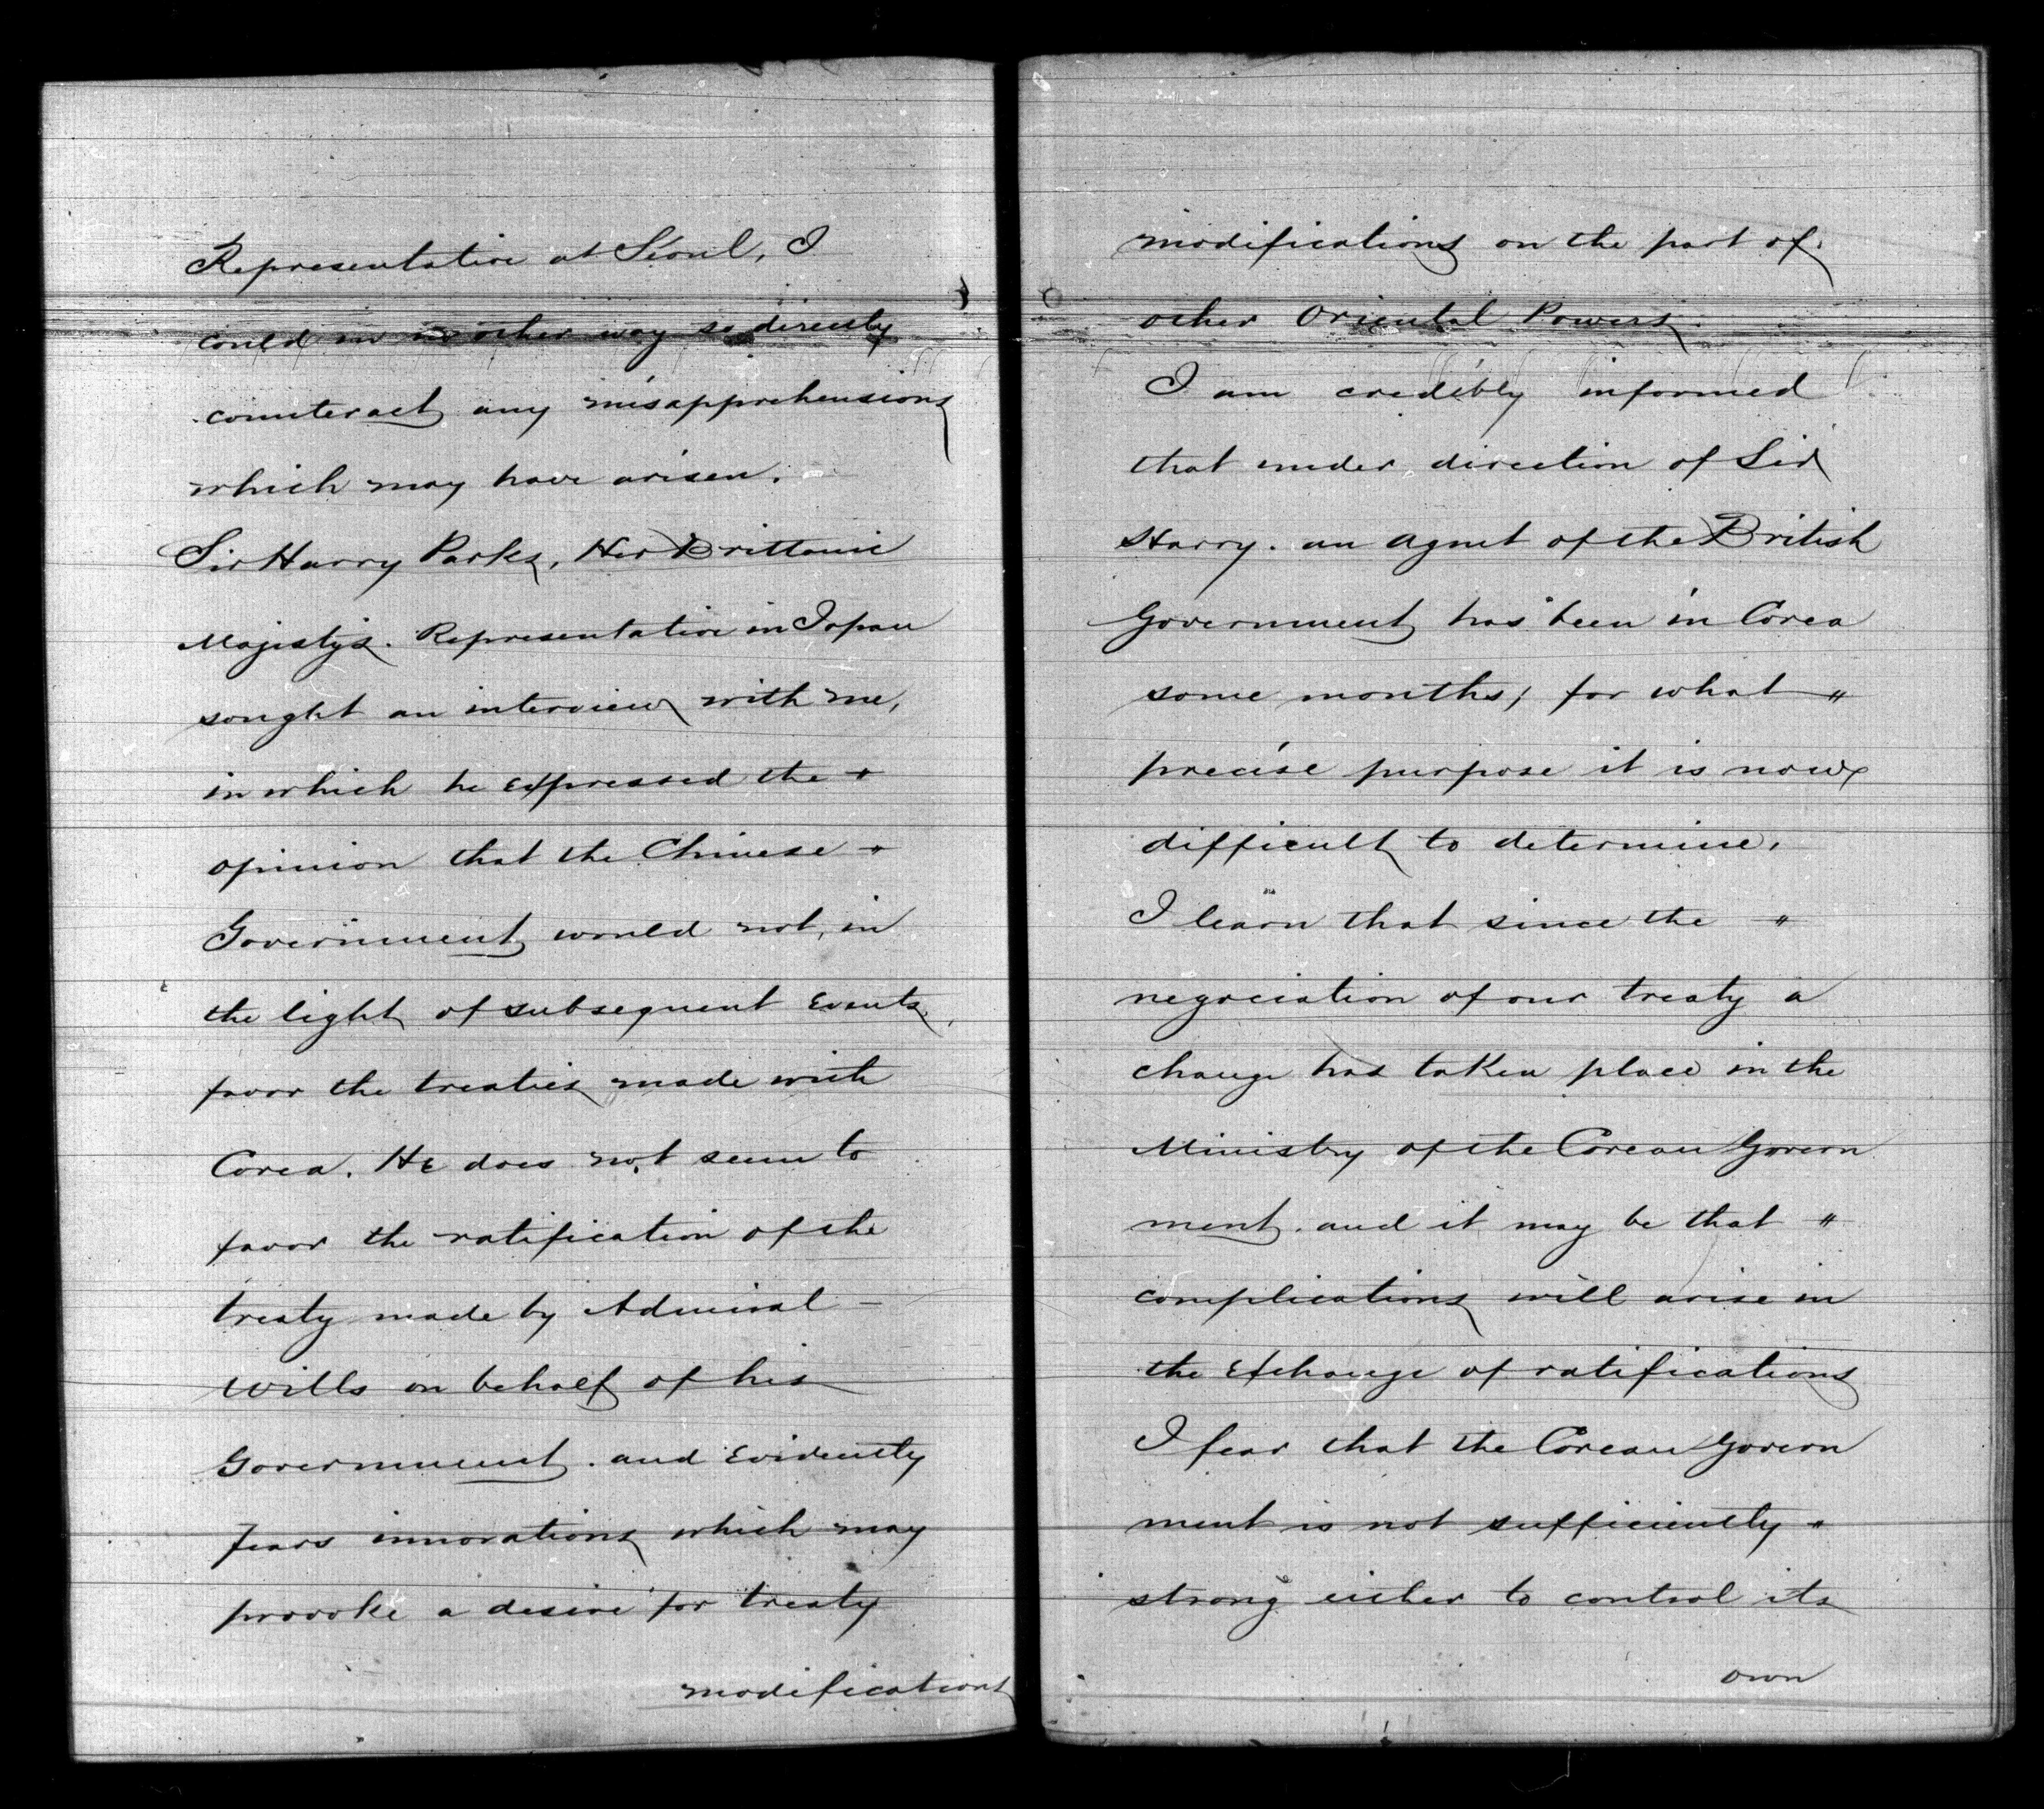 Representative at Séoul, I
could in no other way so directly
counteract any misapprehensions
which may have arisen.
Sir Harry Parks, Her Brittanic
Majesty's. Representative in Japan
sought an interview with me,
in which he expressed the "
opinion that the Chinese "
Government would not, in
the light of subsequent Events,
favor the treaties made with
Corea. He does not seem to
favor the ratification of the
treaty made by Admiral —
Wills on behalf of his
Government. and Evidently
fears innovations which may
provoke a desire for treaty
modifications
modifications on the part of
other Oriental Powers.
I am credibly informed
that under direction of Sir
Harry. an agnet of the British
Government has been in Corea
some months; for what "
precise purpose it is now
difficult to determine.
I learn that since the "
negociation of our treaty a
change has taken place in the
Ministry of the Corean Govern
ment. and it may be that "
complications will arise in
the Exchange of ratifications
I fear that the Corean Govern
ment is not sufficiently "
strong either to control its
own